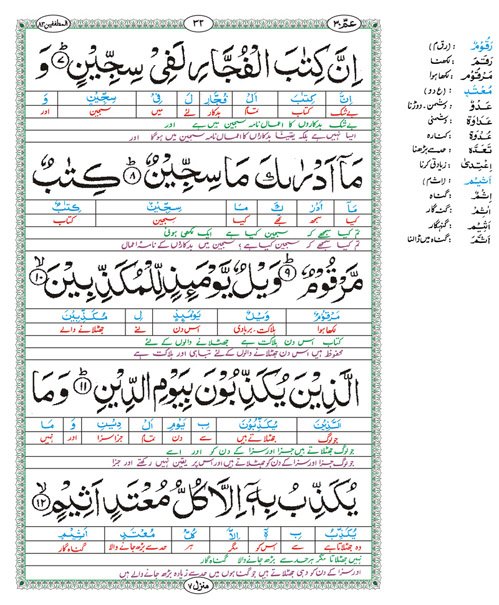 عمّ ٣٠
٣٢
المطففين ٨٣
اِنَّ كِتٰبَ الْفُجَّارِ لَفِيْ سِجِّيْنٍ ؕ﴿۷﴾ وَ
اِنَّ كِتٰبَ الْ فُجَّارِ لَ فِيْ سِجِّيْنٍ وَ
بےشک کتاب تمام بدکار لئے میں سجین اور
بے شک بدکاروں کا اعمال نامہ سجین میں ہے اور
ایسا نہیں ہے بلکہ یقینا بدکاروں کا اعمال نامہ سجین میں ہوگا اور
مَاۤ اَدْرٰىكَ مَا سِجِّيْنٌ ؕ﴿۸﴾ كِتٰبٌ
مَاۤ اَدْرٰ كَ مَا سِجِّيْنٌ كِتٰبٌ
کیا سمجھ تجھے کیا سجین کتاب
تم کیا سمجھے کہ سجین کیا ہے ایک لکھی ہوئی
تم کیا سمجھے کہ سجین کیا ہے؟ سجین میں بدکاروں کے نامۂ اعمال
مَّرْقُوْمٌ ؕ﴿۹﴾ وَيْلٌ يَّوْمَئِذٍ لِّلْمُكَذِّبِيْنَ ﴿۱۰﴾
مَرْقُوْمٌ وَيْلٌ يَوْمَئِذٍ لِ مُكَذِّبِيْنَ
لکھا ہوا ہلاکت، بربادی اس دن لئے جھٹلانے والے
کتاب اس دن ہلاکت ہے جھٹلانے والوں کے لئے
محفوظ ہیں اس دن جھٹلانے والوں کے لئے تباہی اور ہلاکت ہے
الَّذِيْنَ يُكَذِّبُوْنَ بِيَوْمِ الدِّيْنِ ؕ﴿۱۱﴾ وَمَا
الَّذِيْنَ يُكَذِّبُوْنَ بِ يَوْمِ الْ دِيْنِ وَ مَا
جو لوگ جھٹلاتے ہیں سے دن تمام جزا سزا اور نہیں
جو لوگ جھٹلاتے ہیں جزا اور سزا کے دن کو اور اسے
جو لوگ جزا اور سزا کے دن کو جھٹلاتے ہیں اور اس پر یقین نہیں رکھتے اور جزا
يُكَذِّبُ بِهٖۤ اِلَّا كُلُّ مُعْتَدٍ اَثِيْمٍ ﴿۱۲﴾
يُكَذِّبُ بِ هٖ اِلَّا كُلُّ مُعْتَدٍ اَثِيْمٍ
وہ جھٹلاتا ہے سے اس کو مگر ہر حد سے بڑھ جانے والا گناہ گار
نہیں جھٹلاتا مگر ہر حد سے بڑھ جانے والا گناہ گار
اور سزا کے دن کو وہی جھٹلاتے ہیں جو گناہوں میں حد سے زیادہ بڑھ جانے والے ہیں
منزل ۷
رَقُوْمٌ : (رقام)
رَقَمَ : لکھنا
مَرْقُوْمٌ : لکھا ہوا
مُعْتَدٍ : (ع دو)
عَدُوٌّ : دشمن۔دوڑنا
عَدَاوَةٌ : دشمنی
عُدْوَةٌ : کنارہ
تَعَدَّهٗ : حد سے بڑھنا
اِعْتَدٰى : زیادتی کرنا
اَثِيْمٍ : (اثم)
اِثْمٌ : گناہ
اٰثِمٌ : گنہگار
اَثِيْمٌ : گنہگار
: گناہ میں ڈالنا